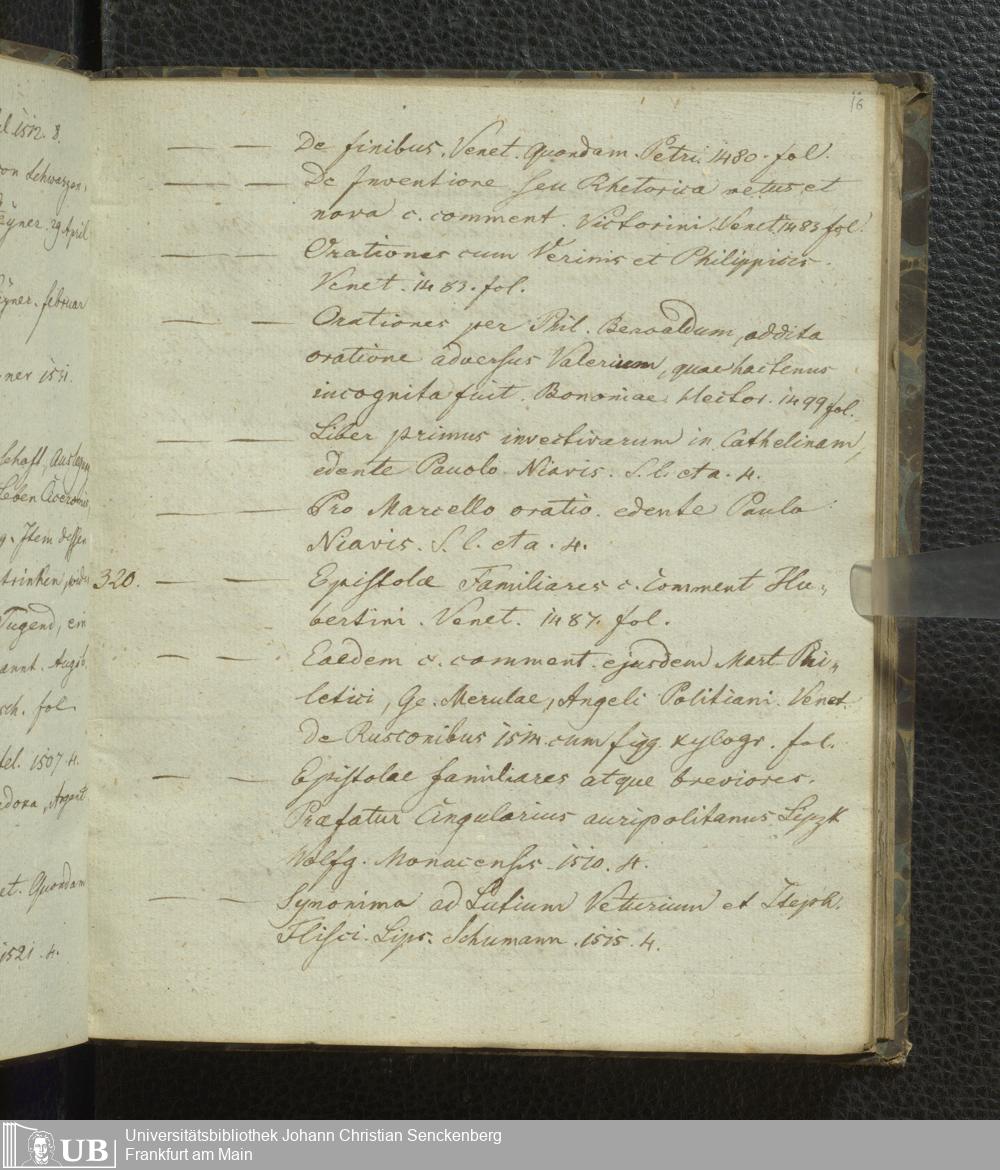 16
— — De finibus. Venet. Quondam Petri. 1480. fol.
— — De Inventione seu Rhetorica vetus et
nova c. comment. Victorini. Venet. 1483 fol.
— — Orationes cum Verinis et Philippicis.
Venet. 1483. fol.
— — Orationes per Phil. Beroaldum, addita
oratione adversus Valerium, quae hactenus
incognita fuit. Bononiae Hector. 1499 fol.
— — Liber primus invectivarum in Cathelinam,
edente Pauolo Niavis. S. l. et a. 4.
— — Pro Marcello oratio. edente Paulo
Niavis. S. l. et a. 4.
320. — — Epistolæ Familiares c. Comment Hu„
bertini. Venet. 1487. fol.
— — Eaedem c. comment. ejusdem Mart. Phi„
letici, Ge. Merulae, Angeli Politiani. Venet.
de Rusconibus cum figg xylogr. fol.
— — Epistolae familiares atque breviores.
Præfatur Cingularius auripolitanus Lipzk
Wolfg. Monacensis. 1510. 4.
— — Synonima ad Lutium Veturium et Steph.
Flisci. Lips. Schumann. 1515. 4.
1512. 8.
von Schwarzen,
29 April
februar
1531.
schaft,
Leben Ciceronis,
Item dessen
trinken,
Tugend, ein
annt. Augsb.
fol.
1507. 4.
et. Quondam
1521. 4.
UB
Universitätsbibliothek Johann Christian Senckenberg
Frankfurt am Main